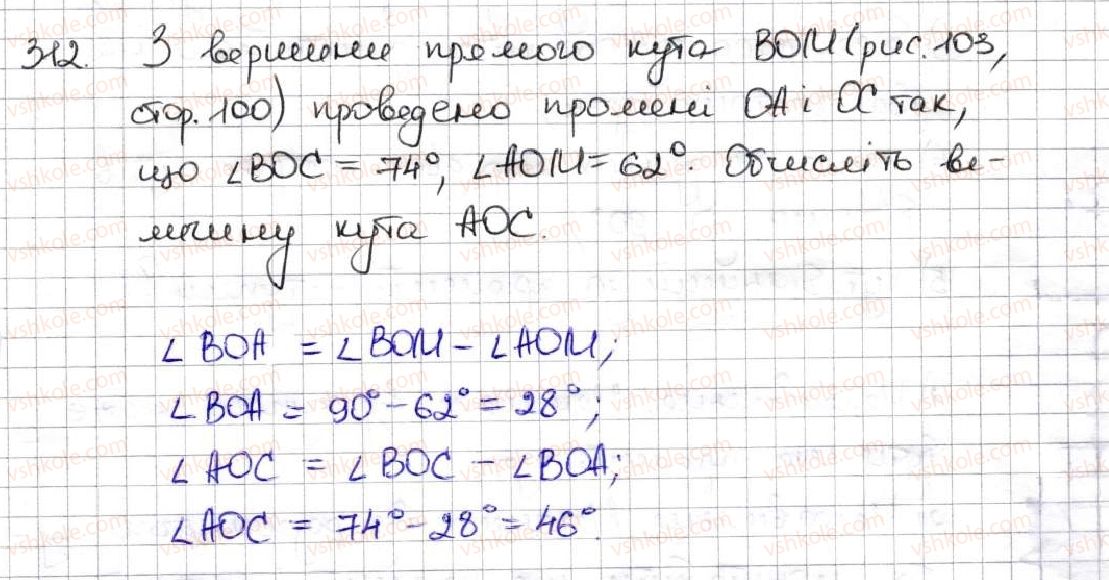 312. З вершини прямого кута BOM (рис. 103,
стор. 100) проведено промені OA і OC так,
що ∠BOC = 74°, ∠AOM = 62°. Обчисліть ве-
личину кута AOC.
∠BOA = ∠BOM - ∠AOM;
∠BOA = 90° - 62° = 28°;
∠AOC = ∠BOC - ∠BOA;
∠AOC = 74° - 28° = 46°.